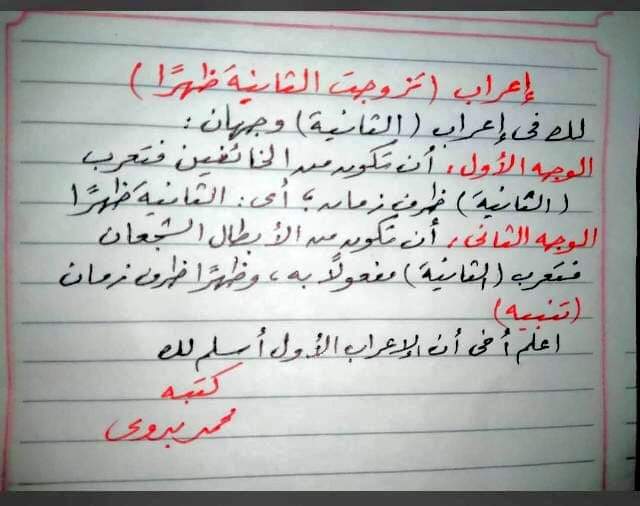 إعراب (تزوجت الثانيةَ ظهرًا)
لك فى إعراب (الثانية) وجهان:
الوجه الأول: أن تكون من الخائفين فتعرب
(الثانيةَ) ظرف زمان؛ أى: الثانيةَ ظهرًا
الوجه الثانى: أن تكون من الأبطال الشجعان
فتعرب (الثانية) مفعولًا به، وظهرًا ظرف زمان
(تنبيه)
اعلم أخى أن الإعراب الأول أسلم لك
كتبه
محمد بدوى